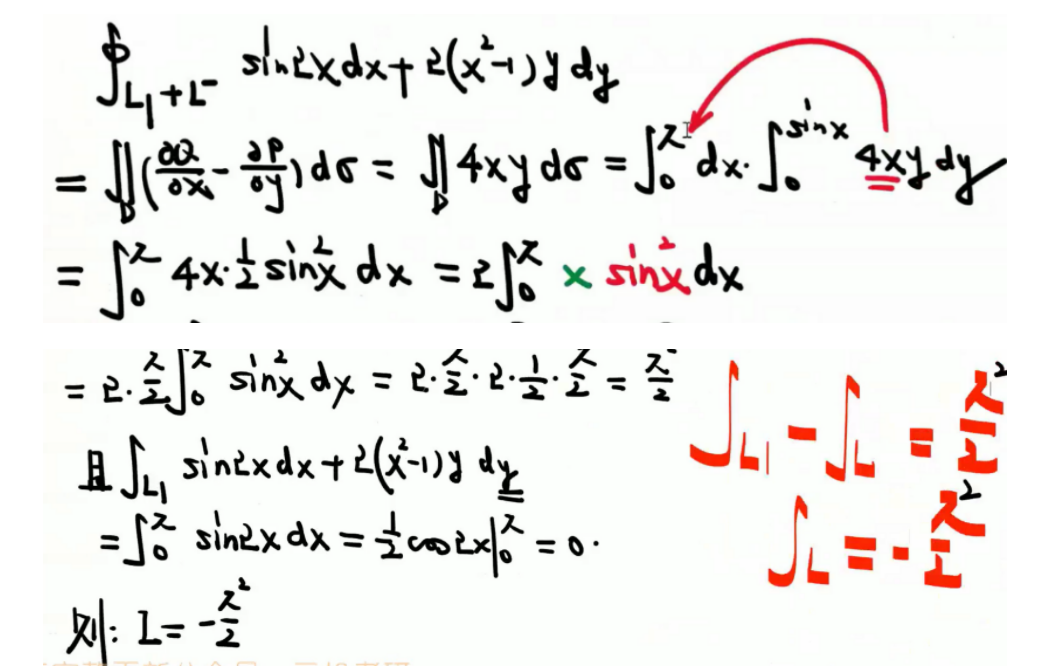 ∮_{L₁+L⁻} sin2xdx+2(x²-1)ydy
= ∬_D(∂Q/∂x-∂P/∂y)dσ = ∬_D 4xydσ = ∫₀^π dx·∫₀^{sinx} 4xydy
= ∫₀^π 4x·½sin²x dx = 2∫₀^π x sin²x dx
= 2·π/2∫₀^π sin²x dx = 2·π/2·2·½·π/2 = π²/2
∫_{L₁} - ∫_L = π²/2
且∫_{L₁} sin2xdx+2(x²-1)y dy
=∫₀^π sin2xdx=½cos2x|₀^π=0.
∫_L = -π²/2
则: I=-π²/2